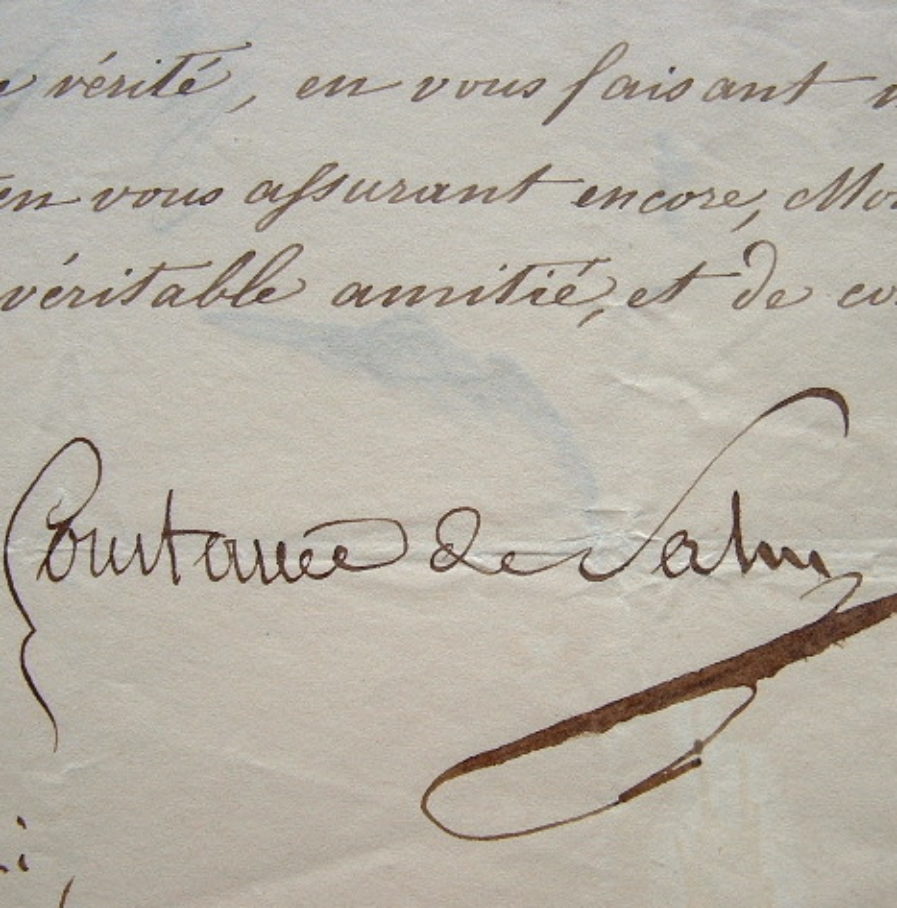 vérité, en vous faisant
en vous assurant encore, Mo
véritable amitié, et de co
Constance de Salm